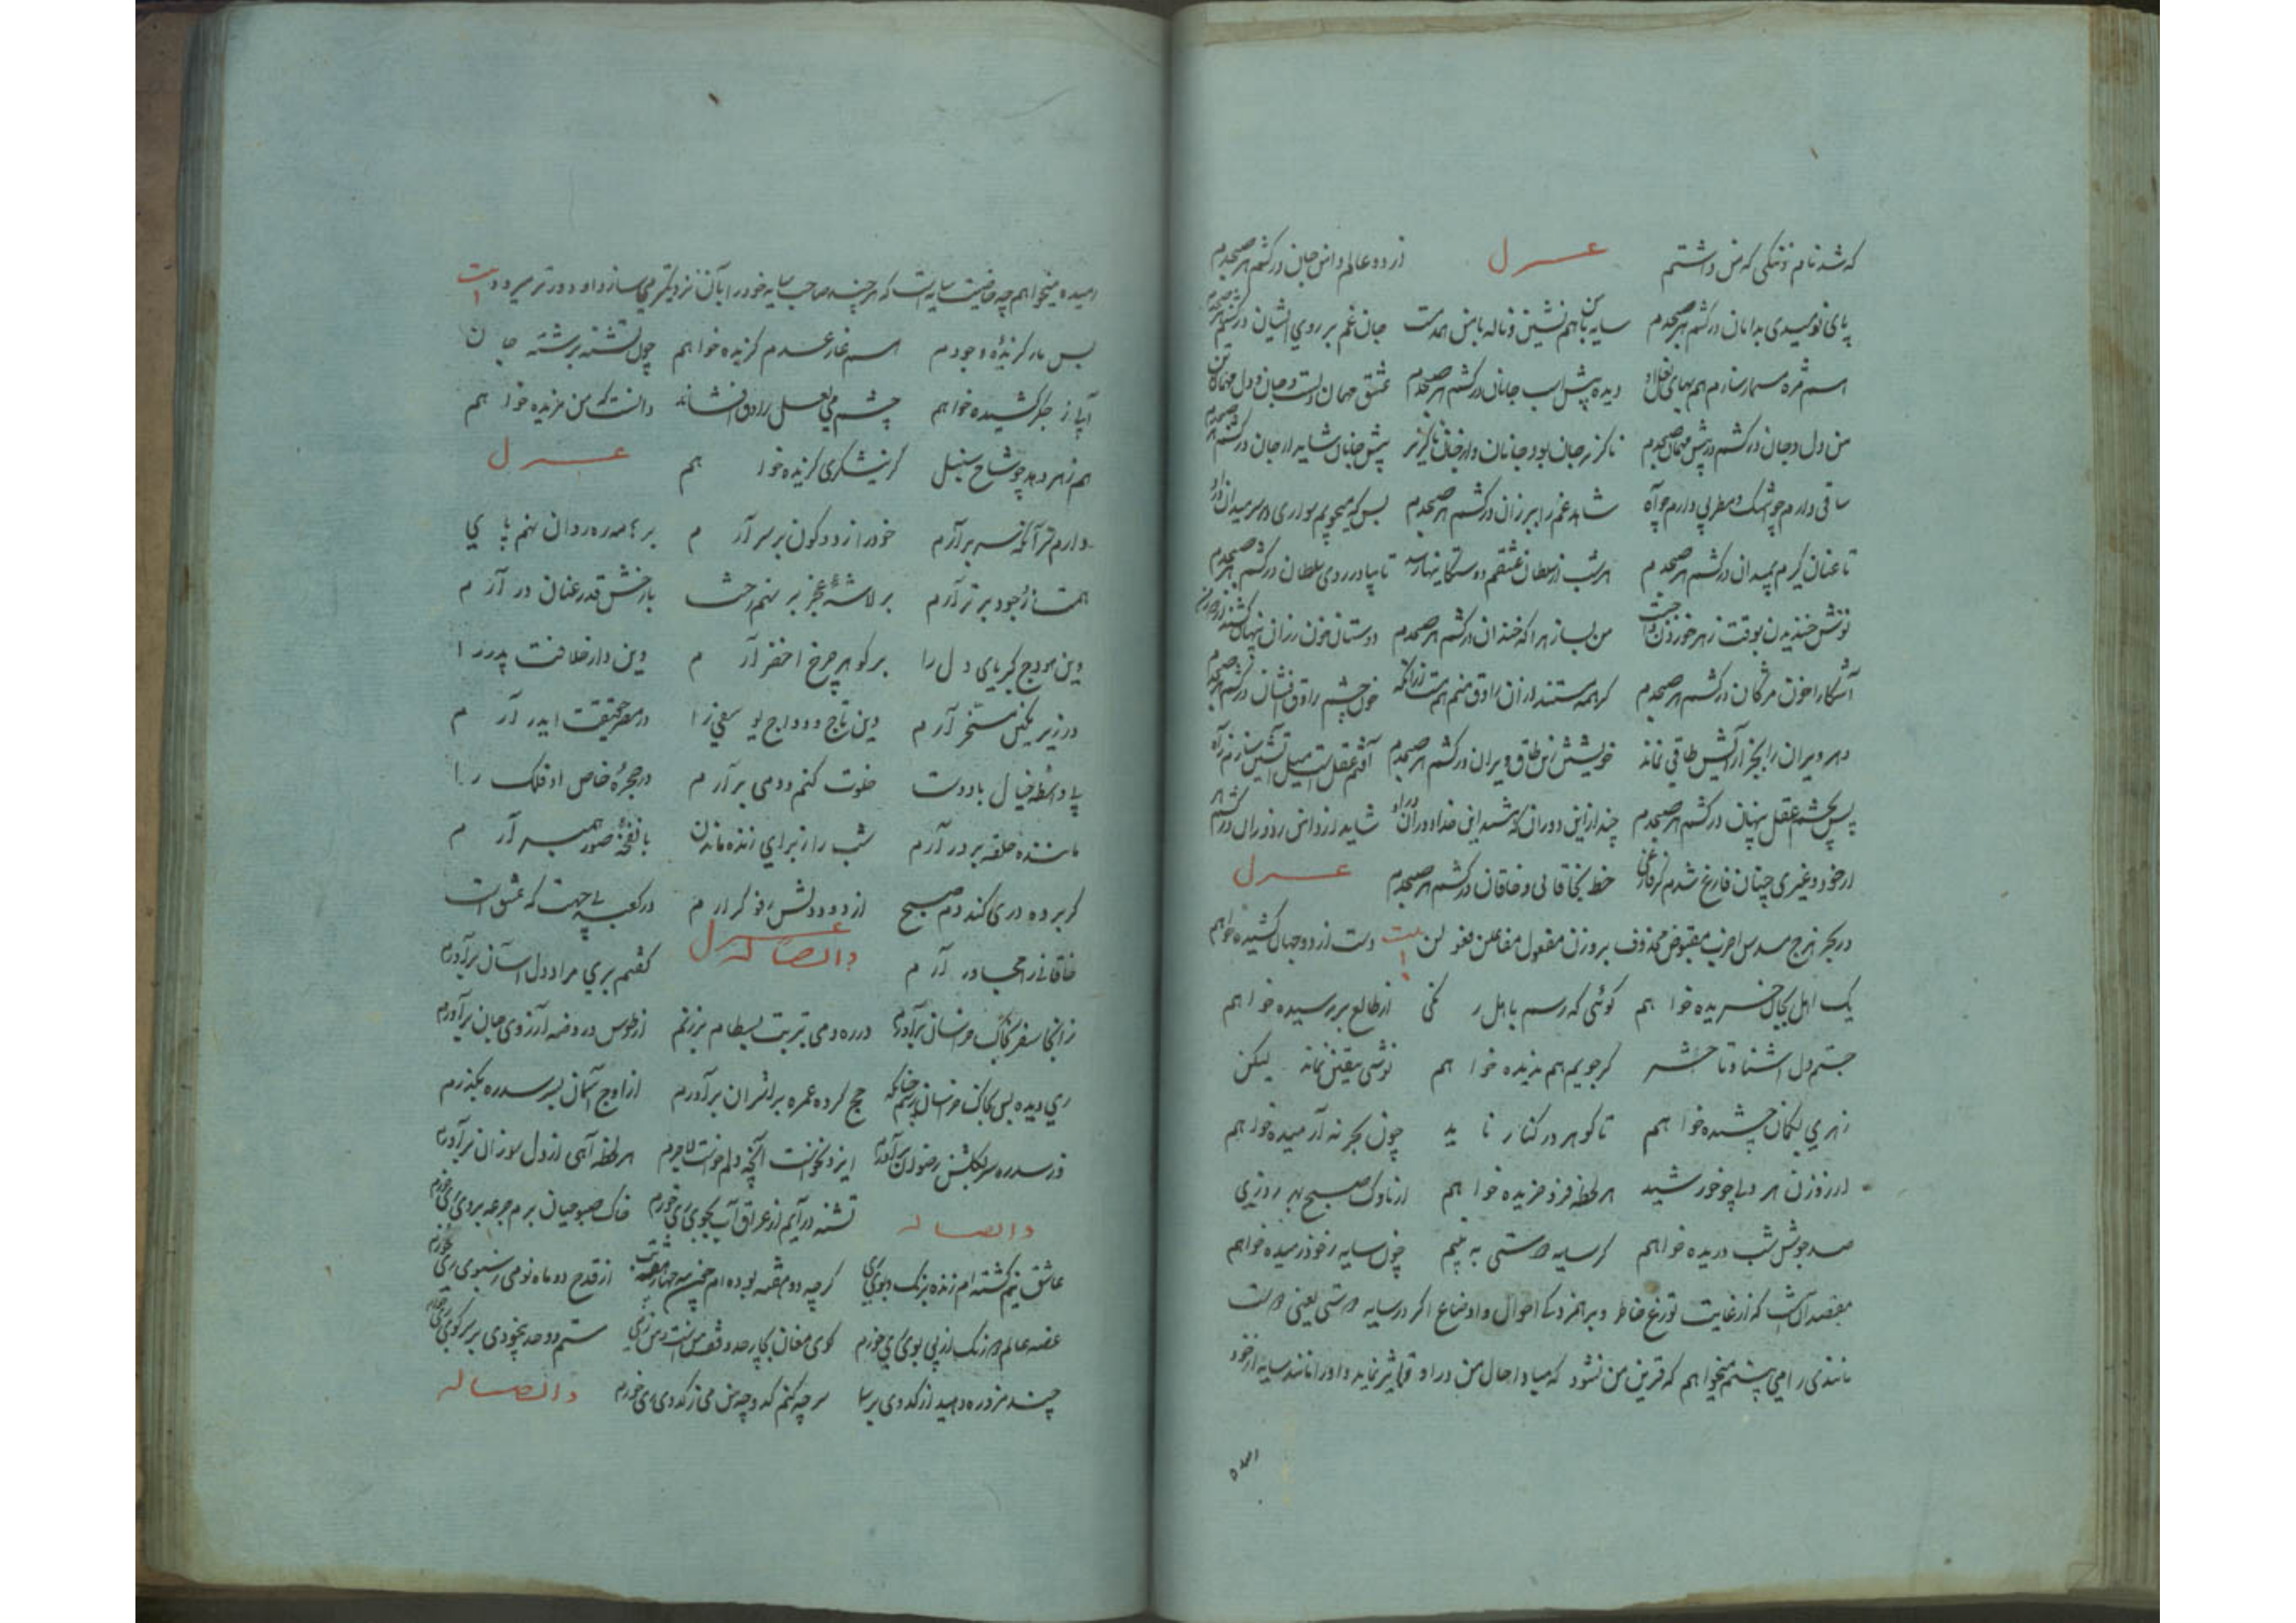 که شد نام ننگی که من داشتم غزل از دو عالم دامن جان درکشم هر صبحدم
پای نومیدی بدامان درکشم هر صبحدم سایه با من همنشین و ناله با من همدمست جام غم بر روی ایشان درکشم هر صبحدم
دیده پیش اسب جانان درکشم هر صبحدم عشق مهمان دلست و جان و دل مهمان من
من دل و جان درکشم در پیش مهمان صبحدم ناگزیر جان بود جانان و از جان ناگزیر پیش جانان شاید ار جان درکشم هر صبحدم
ساقی دارم چو اشک و مطربی دارم چو آه شاهد غم را ببر زان درکشم هر صبحدم بس که میجویم سواری بر سر میدان راز
تا عنان گیرم بمیدان درکشم هر صبحدم هر شب از سلطان عشقم دوستگانیها رسد تا بیاد روی سلطان درکشم هر صبحدم
نوش خندیدن بوقت زهر خوردن واجبست من بسا زهرا که خندان درکشم هر صبحدم دوستان خون رزان پنهان کشند از دور و من
آشکارا خون مژگان درکشم هر صبحدم گر همه مستند از آن راوق منم هم مست از آنکه خون چشم راوق افشان درکشم هر صبحدم
دهر ویران را بجز آرایش طاقی نماند خویشتن زین طاق ویران درکشم هر صبحدم آفتم عقلست میل آتشین سازم ز آه
پس بچشم عقل پنهان درکشم هر صبحدم چند ازین دوران که هستند این خدا دوران درو شاید ار دامن ز دوران درکشم هر
از خود و غیری چنان فارغ شدم کز فارغی خط بخاقانی و خاقان درکشم هر صبحدم غزل
در بحر هزج مسدس اخرب مقبوض محذوف بر وزن مفعول مفاعلن فعولن بیت دست از دو جهان کشیده خواهم
یک اهل بجان خریده خواهم گوئی که رسم باهل رنگی از طالع بر رسیده خواهم
جستم دل آشنا و تا حشر گر جویم هم ندیده خواهم نوشی بیقین نماند لیکن
زهری بگمان چشیده خواهم تا گوهر در کنار ناید چون بحر نه آرمیده خواهم
از روزن هر دلی چو خورشید هر لحظه فرو خزیده خواهم از ناوک صبح بهر روزی
صد جوشن شب دریده خواهم گر سایه دوستی به بینم چون سایه ز خود رمیده خواهم
مقصد آنست که از غایت توزع خاطر و برهمزدگی احوال و اوضاع اگر در سایه دوستی یعنی دوست
مانندی را می بینم میخواهم که قرین من نشود که مبادا حال من در او تاثیر نماید و او را مانند سایه از خود
رمیده
رمیده میخواهم چه خاصیت سایه است که هر چند صاحب سایه خود را بآن نزدیکتر می سازد او دورتر میرود بیت
بس مار گزیده وجودم اسم غار عدم گزیده خواهم چون تشنه برشته جان
آبی ز جگر کشیده خواهم چشم می لعل راوق افشاند دانست که من مزیده خواهم
هم زهر دهد چو شاخ سنبل گر نیشکری گزیده خواهم غزل
دارم سر آنکه سر برآرم خود را ز دو کون برسر آرم بر هامه رهروان نهم پای
همت ز وجود برتر آرم بر لاشه عجز بر نهم رخت با رخش قدر عنان در آرم
وین هودج کبریای دل را بر کوهه چرخ اخضر آرم وین دار خلافت پدر را
در زیر نگین مسخر آرم وین تاج و دواج یوسفی را در مصر حقیقت اندر آرم
بی واسطه خیال با دوست خلوت کنم و دمی برآرم در حجره خاص او فلک را
ماننده حلقه بر در آرم شب را ز برای زنده ماندن با نفخه صور همبر آرم
گر پرده دری کند دم صبح از دود دلش رفوگر آرم در کعبه بی جهت که عشق است
خاقانی را مجاور آرم غزل و ایضا له گفتم بری مراد دل آسان برآورم
زآنجا سفر بخاک خراسان برآورم در ره دمی بتربت بسطام برزنم از طوس در روضه آرزوی جان برآورم
ری دیده پس بخاک خراسان رسم چنانکه حج کرده عمره بر اثر آن برآورم از اوج آسمان بسر سدره بگذرم
وز سدره سر بگلشن رضوان برآورم ایزد نخواست آنچه دلم خواست لاجرم هر لحظه آهی از دل سوزان برآورم
و ایضا له تشنه در آیم از عراق آب بجوی ری خورم خاک صبوحیان برم جرعه بروی ری خورم
عاشق نیم کشته ام زنده برنگ و بوی ری گرچه دو هفته بوده ام از قدح دو ماه نو می بسوی ری خورم
غصه عالم ار زنگ از پی بوی ری خورم کوی مغان ستم و صد بیخودی بر سر کوی ری خورم
چند مزوره دهید از کدوی بر سر چه کنم کدو چه من می ز کدوی ری خورم و ایضا له